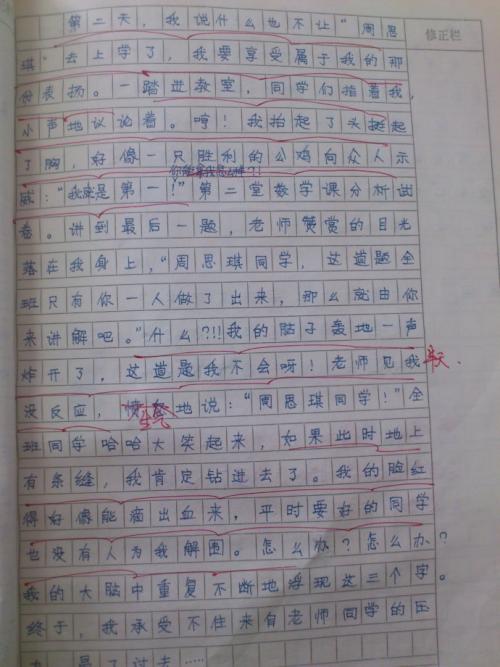 第二天，我说什么也不让“周思
修正栏
琪”去上学了，我要享受属于我的那
份表扬。一踏进教室，同学们指着我，
小声地议论着。哼！我抬起了头挺起
了胸，好像一只胜利的公鸡向众人示
你能拿我怎么样？！
威：“我就是第一！”第二堂数学课分析试
卷。讲到最后一题，老师赞赏的目光
落在我身上，“周思琪同学，这道题全
班只有你一人做了出来，那么就由你
来讲解吧。”什么？!!!我的脑子轰地一声
炸开了，这道题我不会呀！老师见我
半天.
没反应，愤怒地说：“周思琪同学！”全
生气
班同学哈哈大笑起来，如果此时地上
有条缝，我肯定钻进去了。我的脸红
得好像能滴出血来，平时要好的同学
也没有人为我解围。怎么办？怎么办？
我的大脑中重复不断地浮现这三个字。
终于，我承受不住来自老师同学的压
晕了过去……